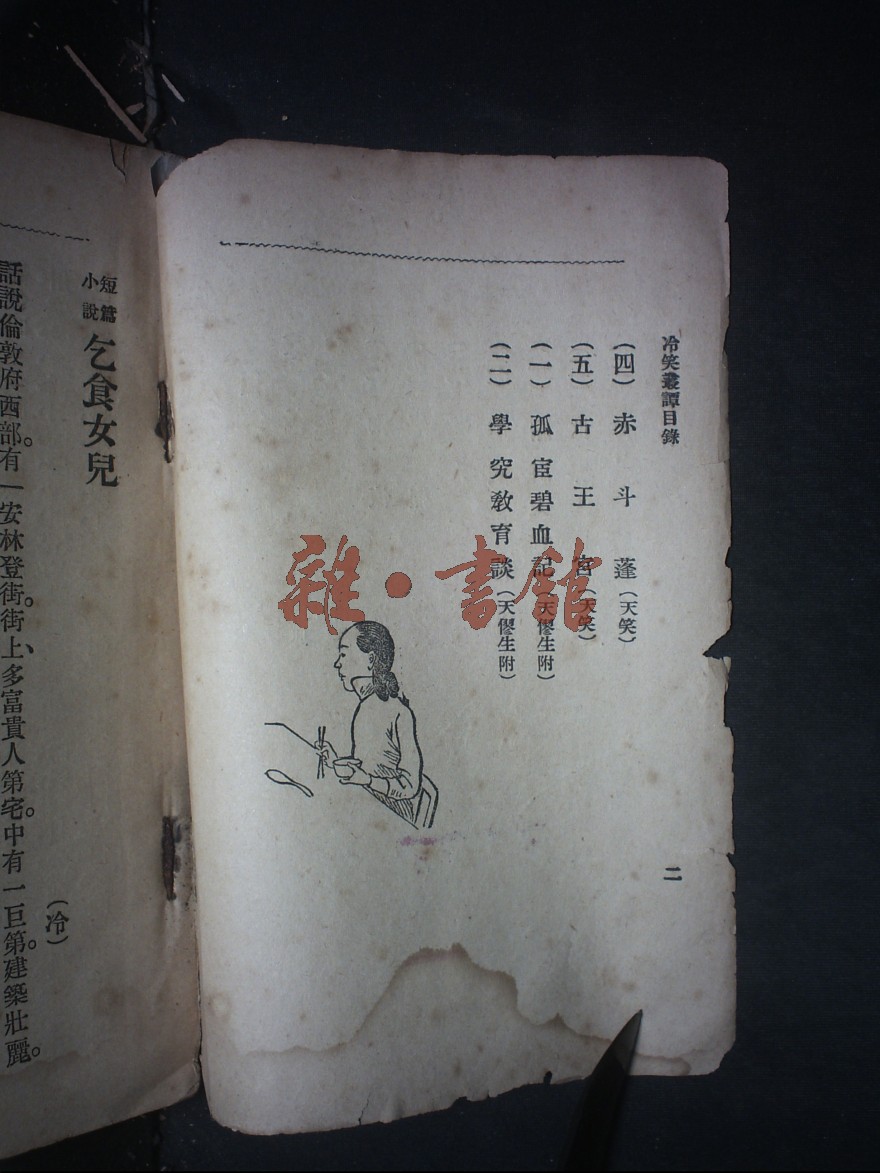 冷笑叢譚目錄
(四)赤斗蓬(天笑)
(五)古王宮(天笑)
(一)孤宦碧血記(天僇生附)
(二)學究教育談(天僇生附)
二
雜·書館
短篇小說 乞食女兒
(冷)
話說倫敦府西部。有一安林登街。街上、多富貴人第宅。中有一巨第。建築壯麗。